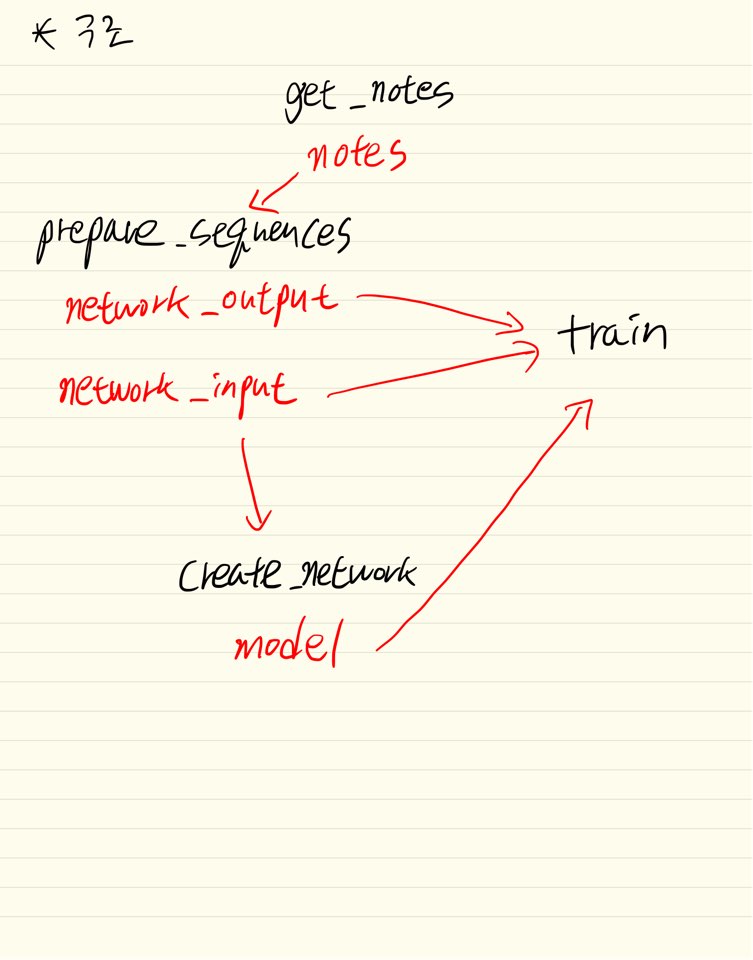 * 구조
get_notes
notes
prepare_sequences
network_output
train
network_input
create_network
model